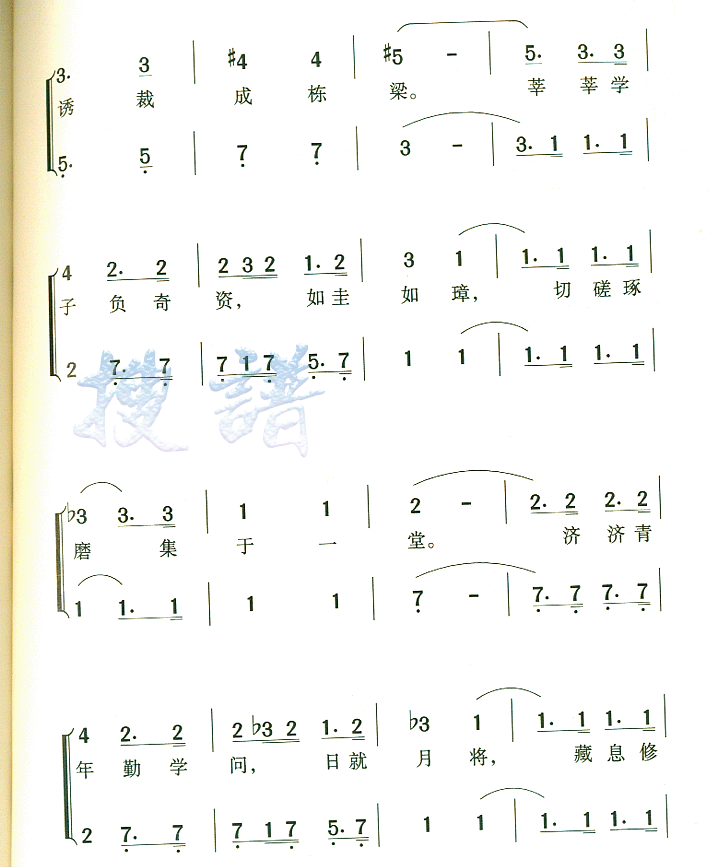 3. 3 | #4 4 | #5 - | 5. 3. 3 |
诱 裁 成 栋 梁。 莘 莘 学
5. 5 | 7 7 | 3 - | 3. 1 1. 1 |
4 2. 2 | 2 3 2 1. 2 | 3 1 | 1. 1 1. 1 |
子 负 奇 资, 如 圭 如 璋, 切 磋 琢
2 7. 7 | 7 1 7 5. 7 | 1 1 | 1. 1 1. 1 |
搜谱
♭3 3. 3 | 1 1 | 2 - | 2. 2 2. 2 |
磨 集 于 一 堂。 济 济 青
1 1. 1 | 1 1 | 7 - | 7. 7 7. 7 |
4 2. 2 | 2 ♭3 2 1. 2 | ♭3 1 | 1. 1 1. 1 |
年 勤 学 问, 日 就 月 将, 藏 息 修
2 7. 7 | 7 1 7 5. 7 | 1 1 | 1. 1 1. 1 |